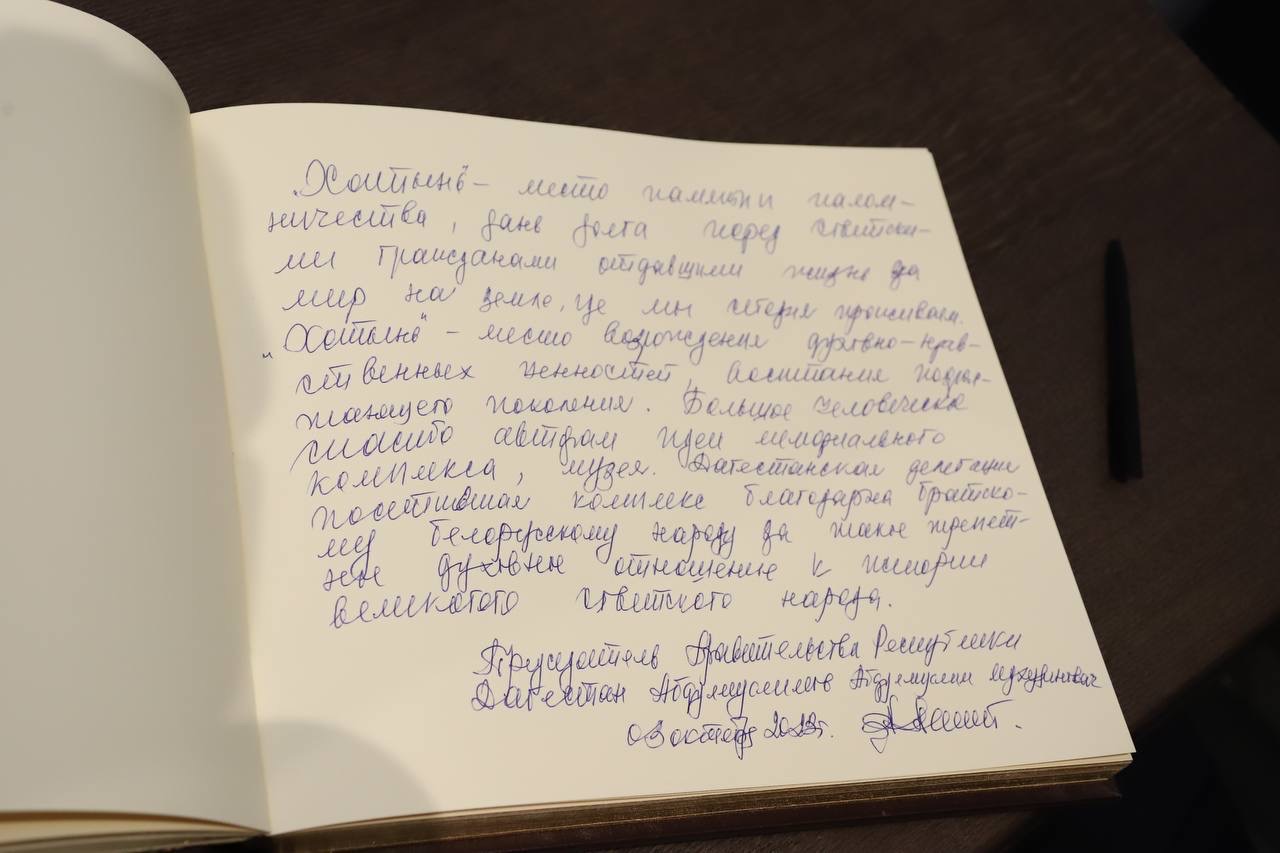 „Хатынь" – место памяти палом-
ничества, дань долга перед советски-
ми гражданами отдавшими жизнь за
мир на земле, где мы сегодня проживаем.
„Хатынь" – место возрождения духовно-нрав-
ственных ценностей, воспитания подрас-
тающего поколения. Большое человеческое
спасибо авторам идеи мемориального
комплекса, музея. Дагестанская делегация
посетившая комплекс благодарна братско-
му белорусскому народу за такое трепет-
ное духовное отношение к истории
великого советского народа.
Председатель Правительства Республики
Дагестан Абдулмуслимов Абдулмуслим Мухудинович
03 октября 2023г.